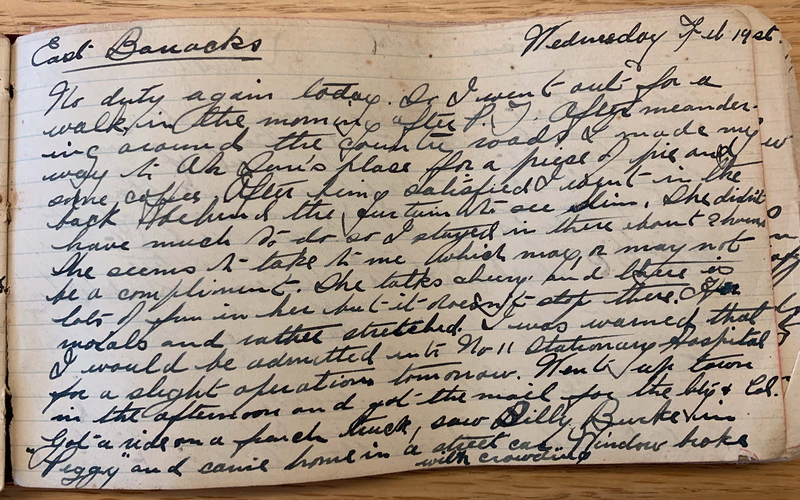 East Barracks Wednesday Feb 19st.
No duty again today. So I went out for a
walk in the morning after P.T. After meander-
ing around the country roads I made my
way to Ah Sun's place for a piece of pie and
some coffee. After being satisfied I went in the
back behind the curtain to see slim. She didn't
have much to do so I stayed in there about 2 hours
She seems to take to me which may or may not
be a compliment. She talks cheery and there is
lots of fun in her but it doesn't stop there. Her
morals and rather stretched. I was warned that
I would be admitted into No 11 Stationary Hospital
for a slight operation tomorrow. Went up town
in the afternoon and got the mail for the boys & Col.
Got a ride on a ranch truck, saw Billy Burke in
"Peggy" and came home in a street car. Window broke
with crowding